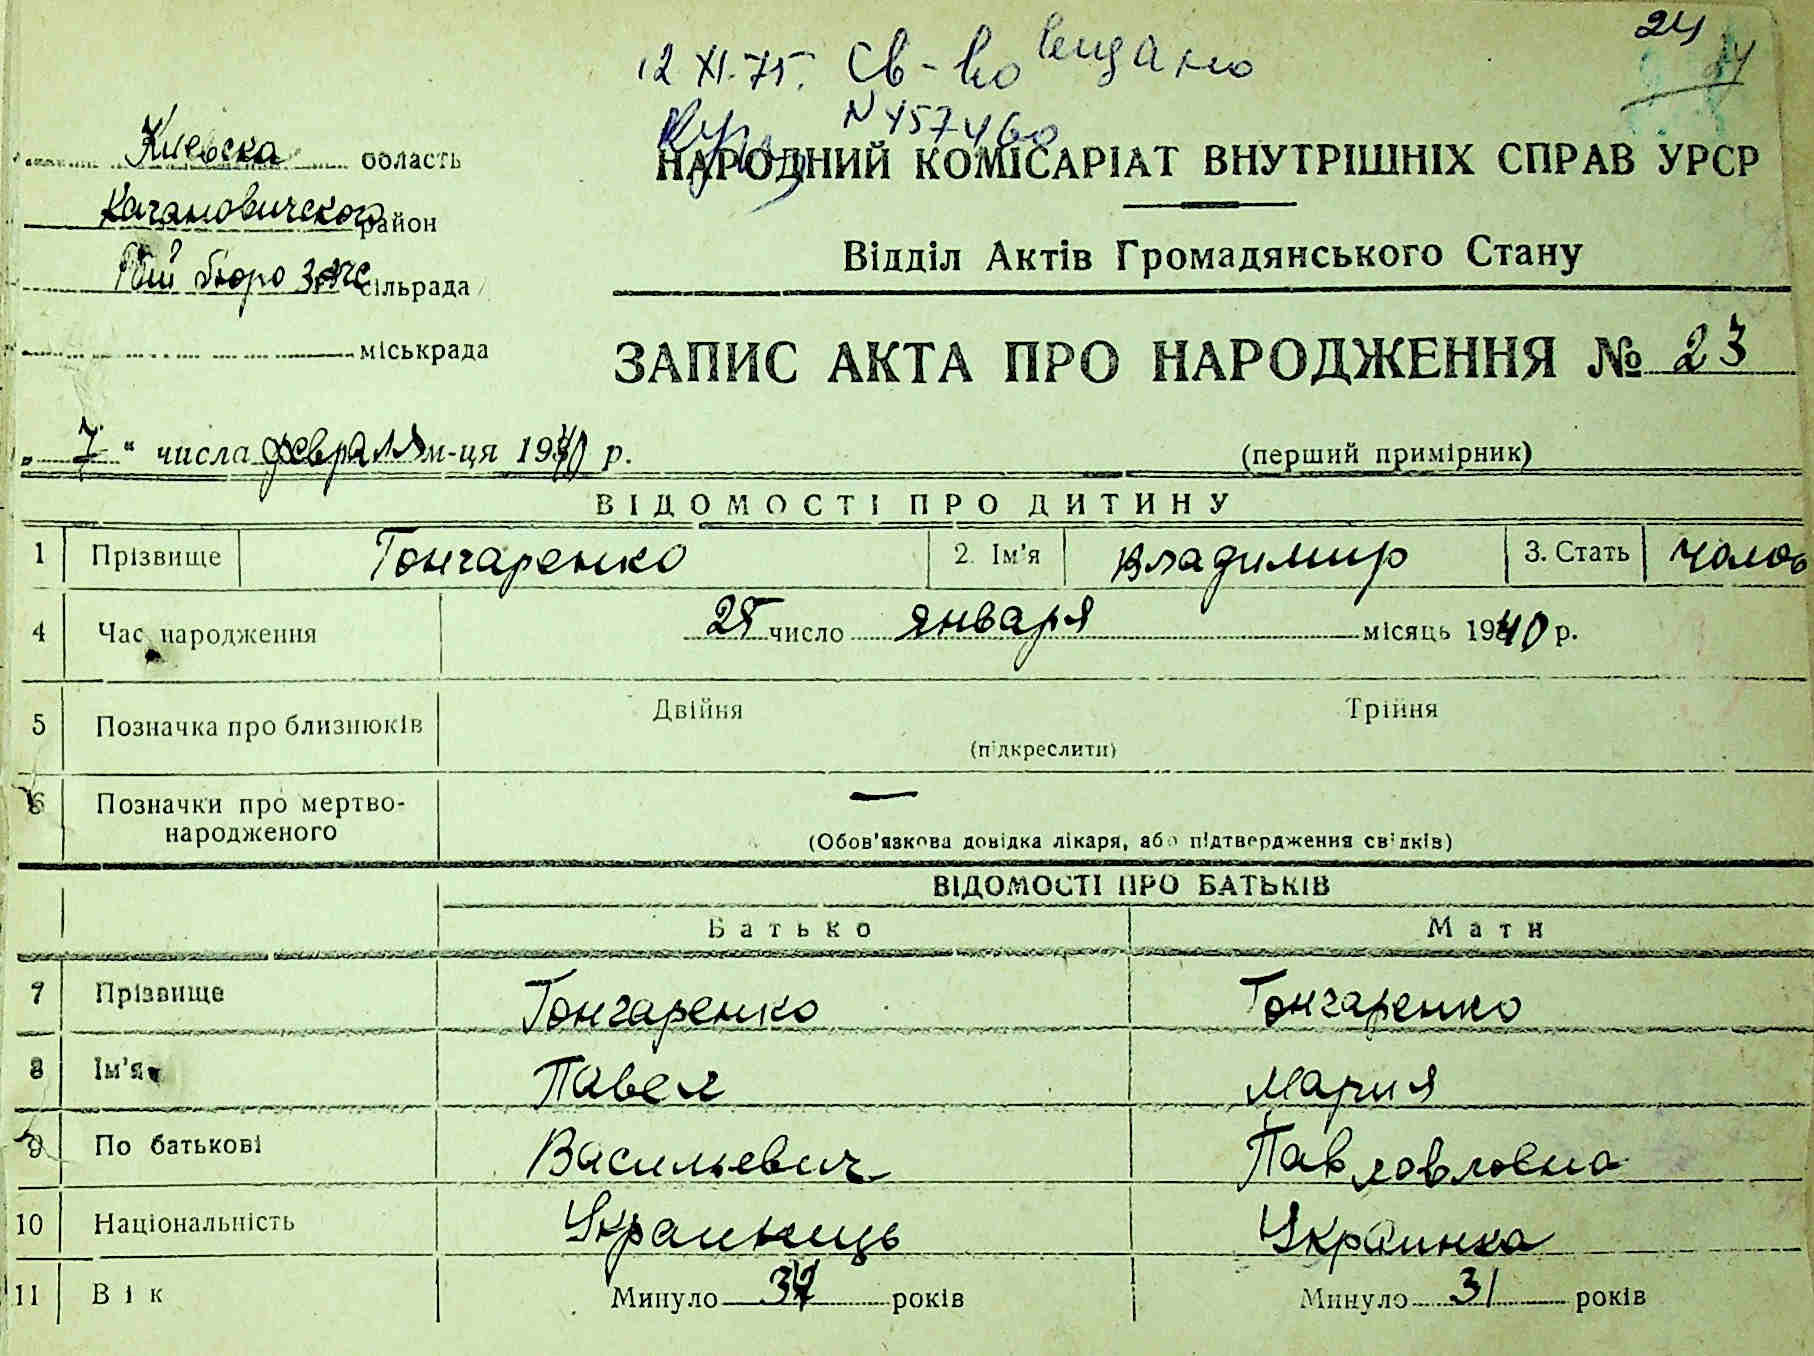 24
12 XI.75. Св-во видано
N 457460
Киевска область
НАРОДНИЙ КОМІСАРІАТ ВНУТРІШНІХ СПРАВ УРСР
Кагановичского район
Відділ Актів Громадянського Стану
бюро ЗАГС сільрада
міськрада
ЗАПИС АКТА ПРО НАРОДЖЕННЯ № 23
„ 7 “ числа февраля м-ця 1940 р.
(перший примірник)
ВІДОМОСТІ ПРО ДИТИНУ
1 Прізвище Гончаренко 2. Ім'я Владимир 3. Стать чолов
4 Час народження 25 число января місяць 1940 р.
5 Позначка про близнюків Двійня Трійня
(підкреслити)
6 Позначки про мертво-
народженого —
(Обов'язкова довідка лікаря, або підтвердження свідків)
ВІДОМОСТІ ПРО БАТЬКІВ
Батько Мати
7 Прізвище Гончаренко Гончаренко
8 Ім'я Павел Мария
9 По батькові Васильевич Павловловна
10 Національність Украинець Украинка
11 Вік Минуло 37 років Минуло 31 років